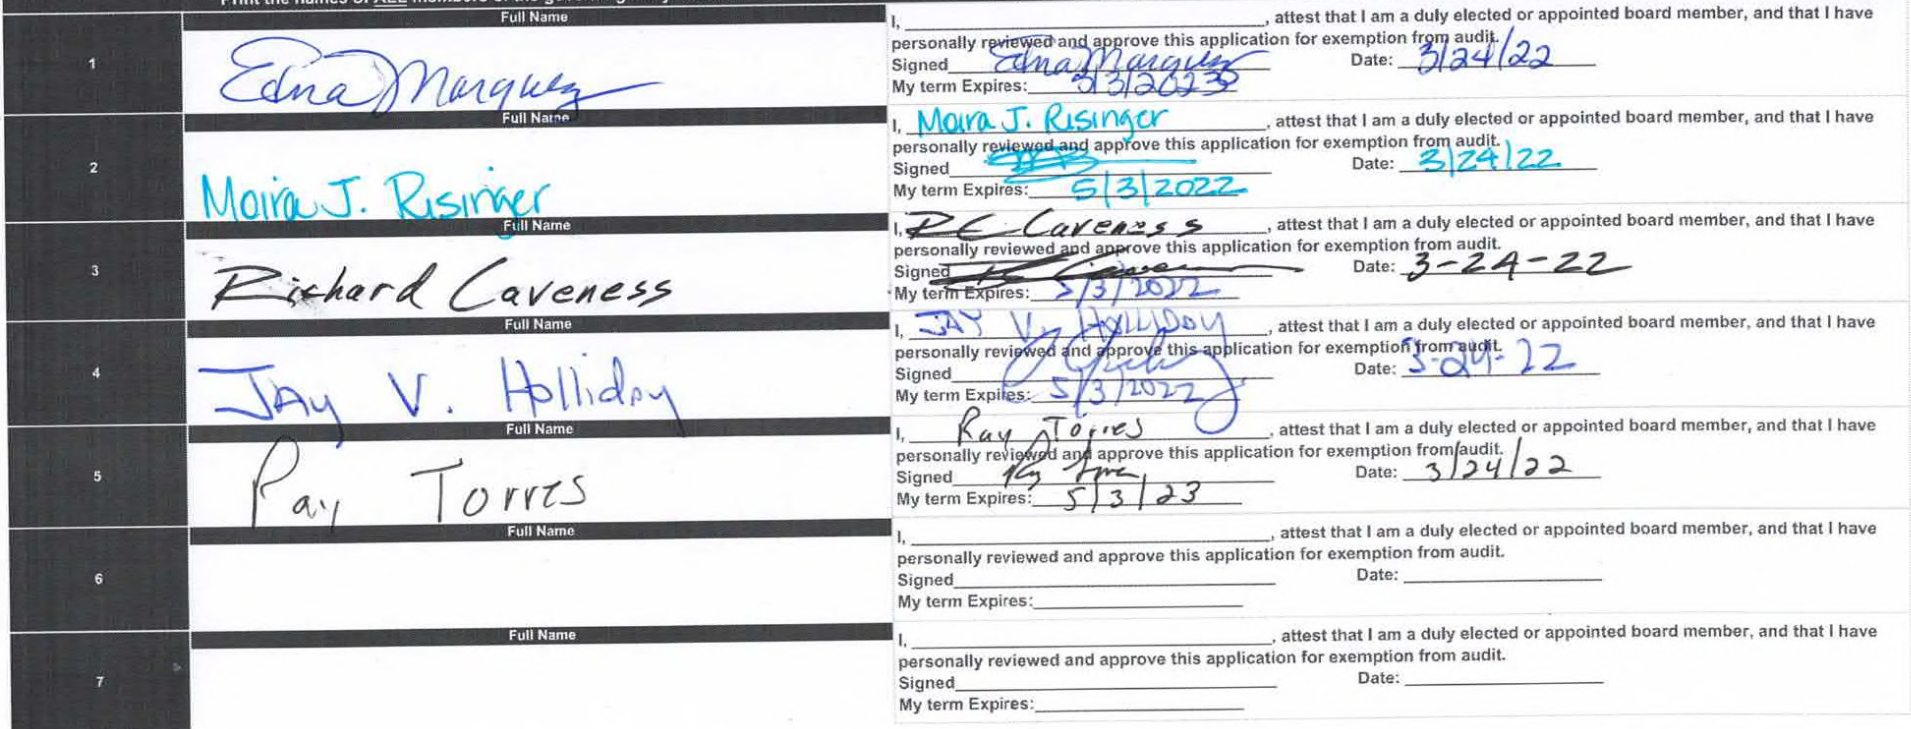 Full Name
1
Edna Marquez
I, , attest that I am a duly elected or appointed board member, and that I have
personally reviewed and approve this application for exemption from audit.
Signed Edna Marquez Date: 3/24/22
My term Expires:
Full Name
2
Moira J. Risinger
I, Moira J. Risinger, attest that I am a duly elected or appointed board member, and that I have
personally reviewed and approve this application for exemption from audit.
Signed Date: 3/24/22
My term Expires: 5/3/2022
Full Name
3
Richard Caveness
I, RC Caveness, attest that I am a duly elected or appointed board member, and that I have
personally reviewed and approve this application for exemption from audit.
Signed Date: 3-24-22
My term Expires: 5/3/2022
Full Name
4
JAy V. Holliday
I, JAY V. HOLLIDAY, attest that I am a duly elected or appointed board member, and that I have
personally reviewed and approve this application for exemption from audit.
Signed Date: 3-24-22
My term Expires: 5/3/2022
Full Name
5
Ray Torres
I, Ray Torres, attest that I am a duly elected or appointed board member, and that I have
personally reviewed and approve this application for exemption from audit.
Signed Date: 3/24/22
My term Expires: 5/3/23
Full Name
6
I, , attest that I am a duly elected or appointed board member, and that I have
personally reviewed and approve this application for exemption from audit.
Signed Date:
My term Expires:
Full Name
7
I, , attest that I am a duly elected or appointed board member, and that I have
personally reviewed and approve this application for exemption from audit.
Signed Date:
My term Expires: